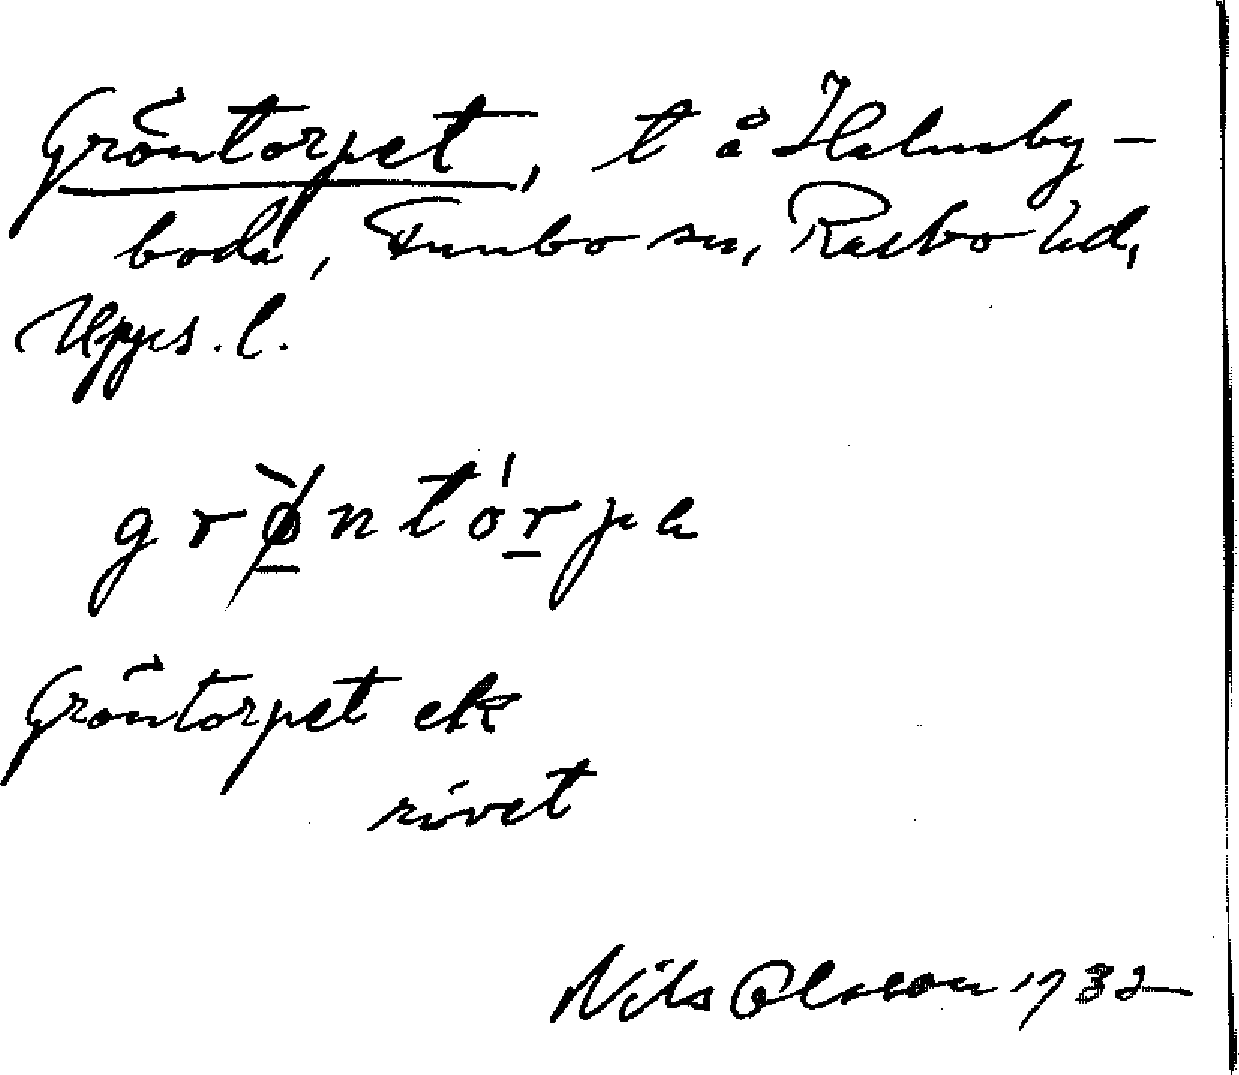 Gröntorpet, t å Holmby-
boda, Funbo sn, Rasbo hd,
Upps. l.
grø̀ntórpe
Gröntorpet ek
rivet
Nils Olsson 1932